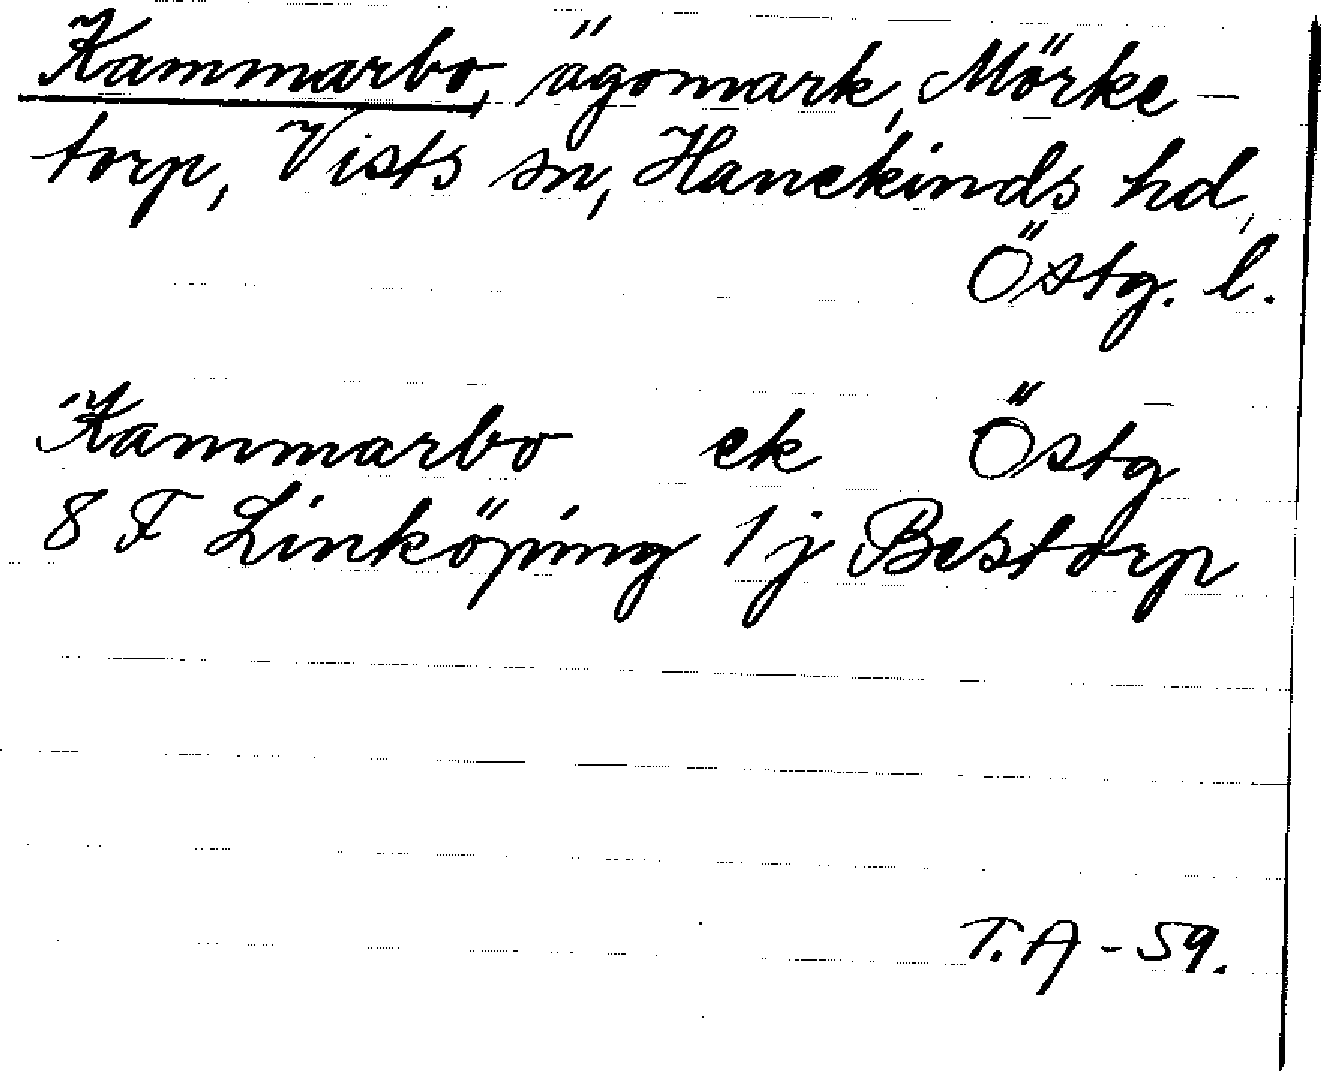 Kammarbo, ägomark, Mörke-
torp, Vists sn, Hanekinds hd,
Östg. l.
Kammarbo ek Östg
8 F Linköping 1 j Bestorp
T.A - 59.